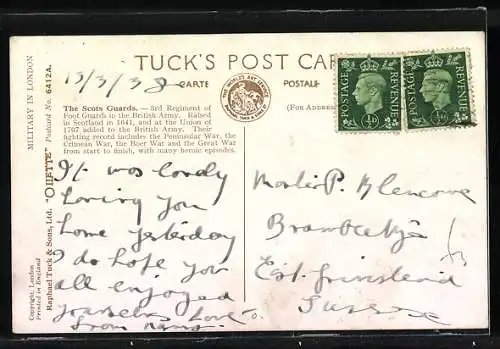 TUCK'S POST CAR
13/3/38
CARTE POSTALE
(FOR ADDRESS
MILITARY IN LONDON
"OILETTE" Postcard No. 6412A.
Raphael Tuck & Sons, Ltd.
Copyright, London
Printed in England
The Scots Guards. — 3rd Regiment of
Foot Guards in the British Army. Raised
in Scotland in 1641, and at the Union of
1707 added to the British Army. Their
fighting record includes the Peninsular War, the
Crimean War, the Boer War and the Great War
from start to finish, with many heroic episodes.
It was lovely
having you
home yesterday
I do hope you
all enjoyed
yourselves Love
from
THE WORLD'S ART SERVICE
POSTAGE REVENUE
½D
POSTAGE REVENUE
½D
Master P. Glencowe
East Grinstead
Sussex